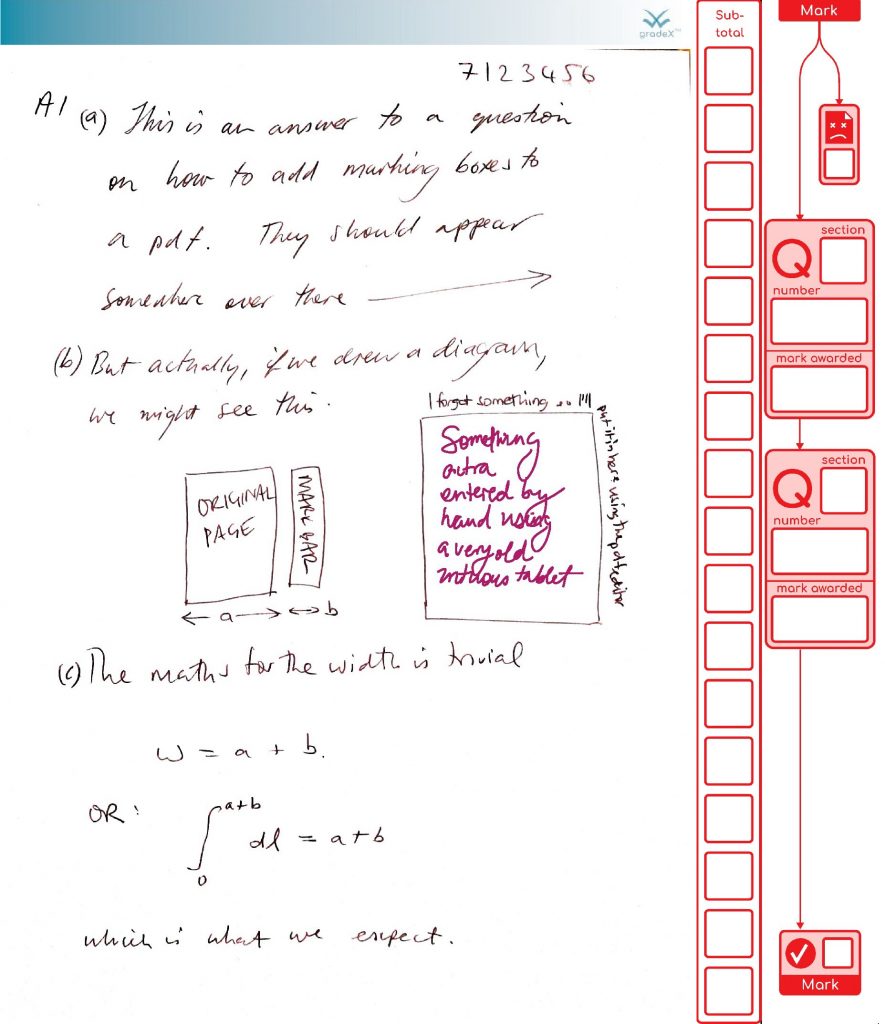 gradeX™
7123456
A1 (a) This is an answer to a question
on how to add marking boxes to
a pdf. They should appear
somewhere over there
(b) But actually, if we drew a diagram,
we might see this.
ORIGINAL
PAGE
MARK BAR
a
b
I forgot something ... !!!!
put it in here using the pdf editor
Something
extra
entered by
hand using
a very old
tablet
(c) The maths for the width is trivial
w = a + b.
OR:
∫₀ᵃ⁺ᵇ dl = a+b
which is what we expect.
Sub-
total
Mark
section
Q
number
mark awarded
section
Q
number
mark awarded
Mark